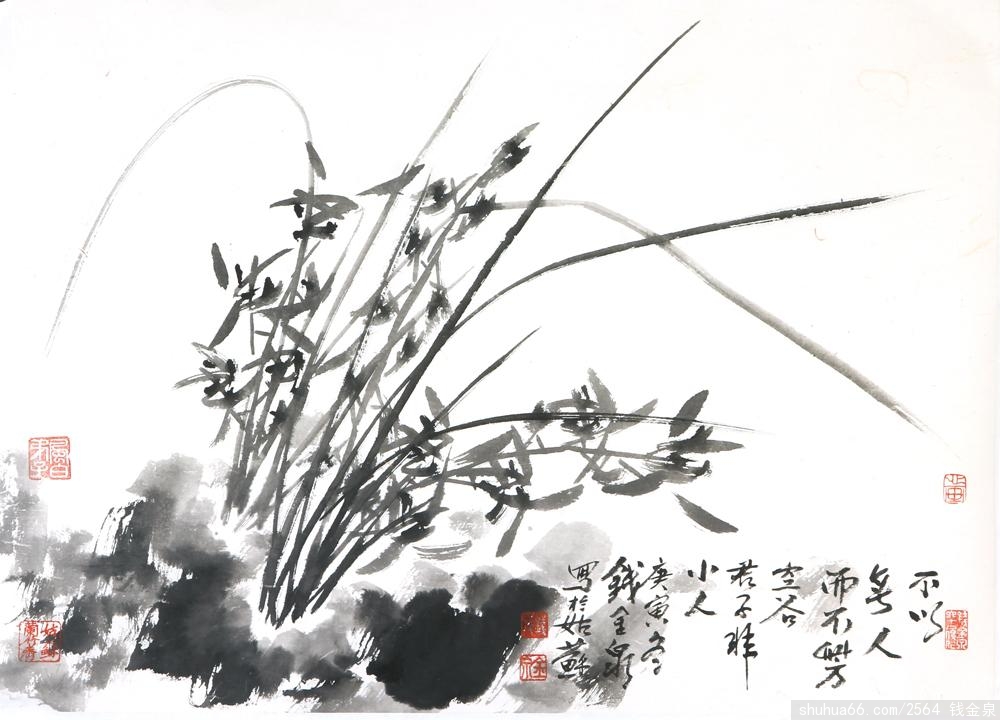 不以
無人
而不芳
空谷
君子非
小人
庚寅冬
錢金泉
寫於姑蘇
shuhua66.com/2564 钱金泉